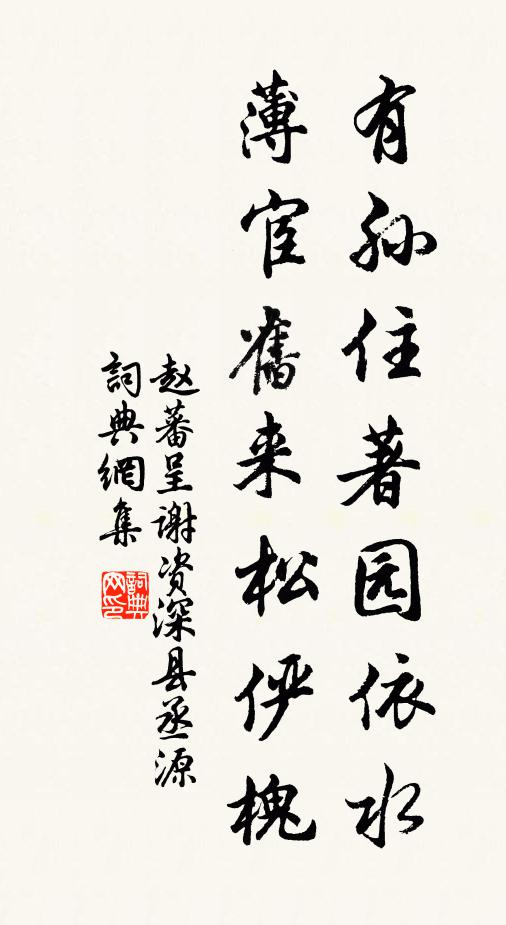 有孙住著园依水
薄宦舊来松俨槐
赵蕃呈谢资深县丞源
詞典網集
詞典网印